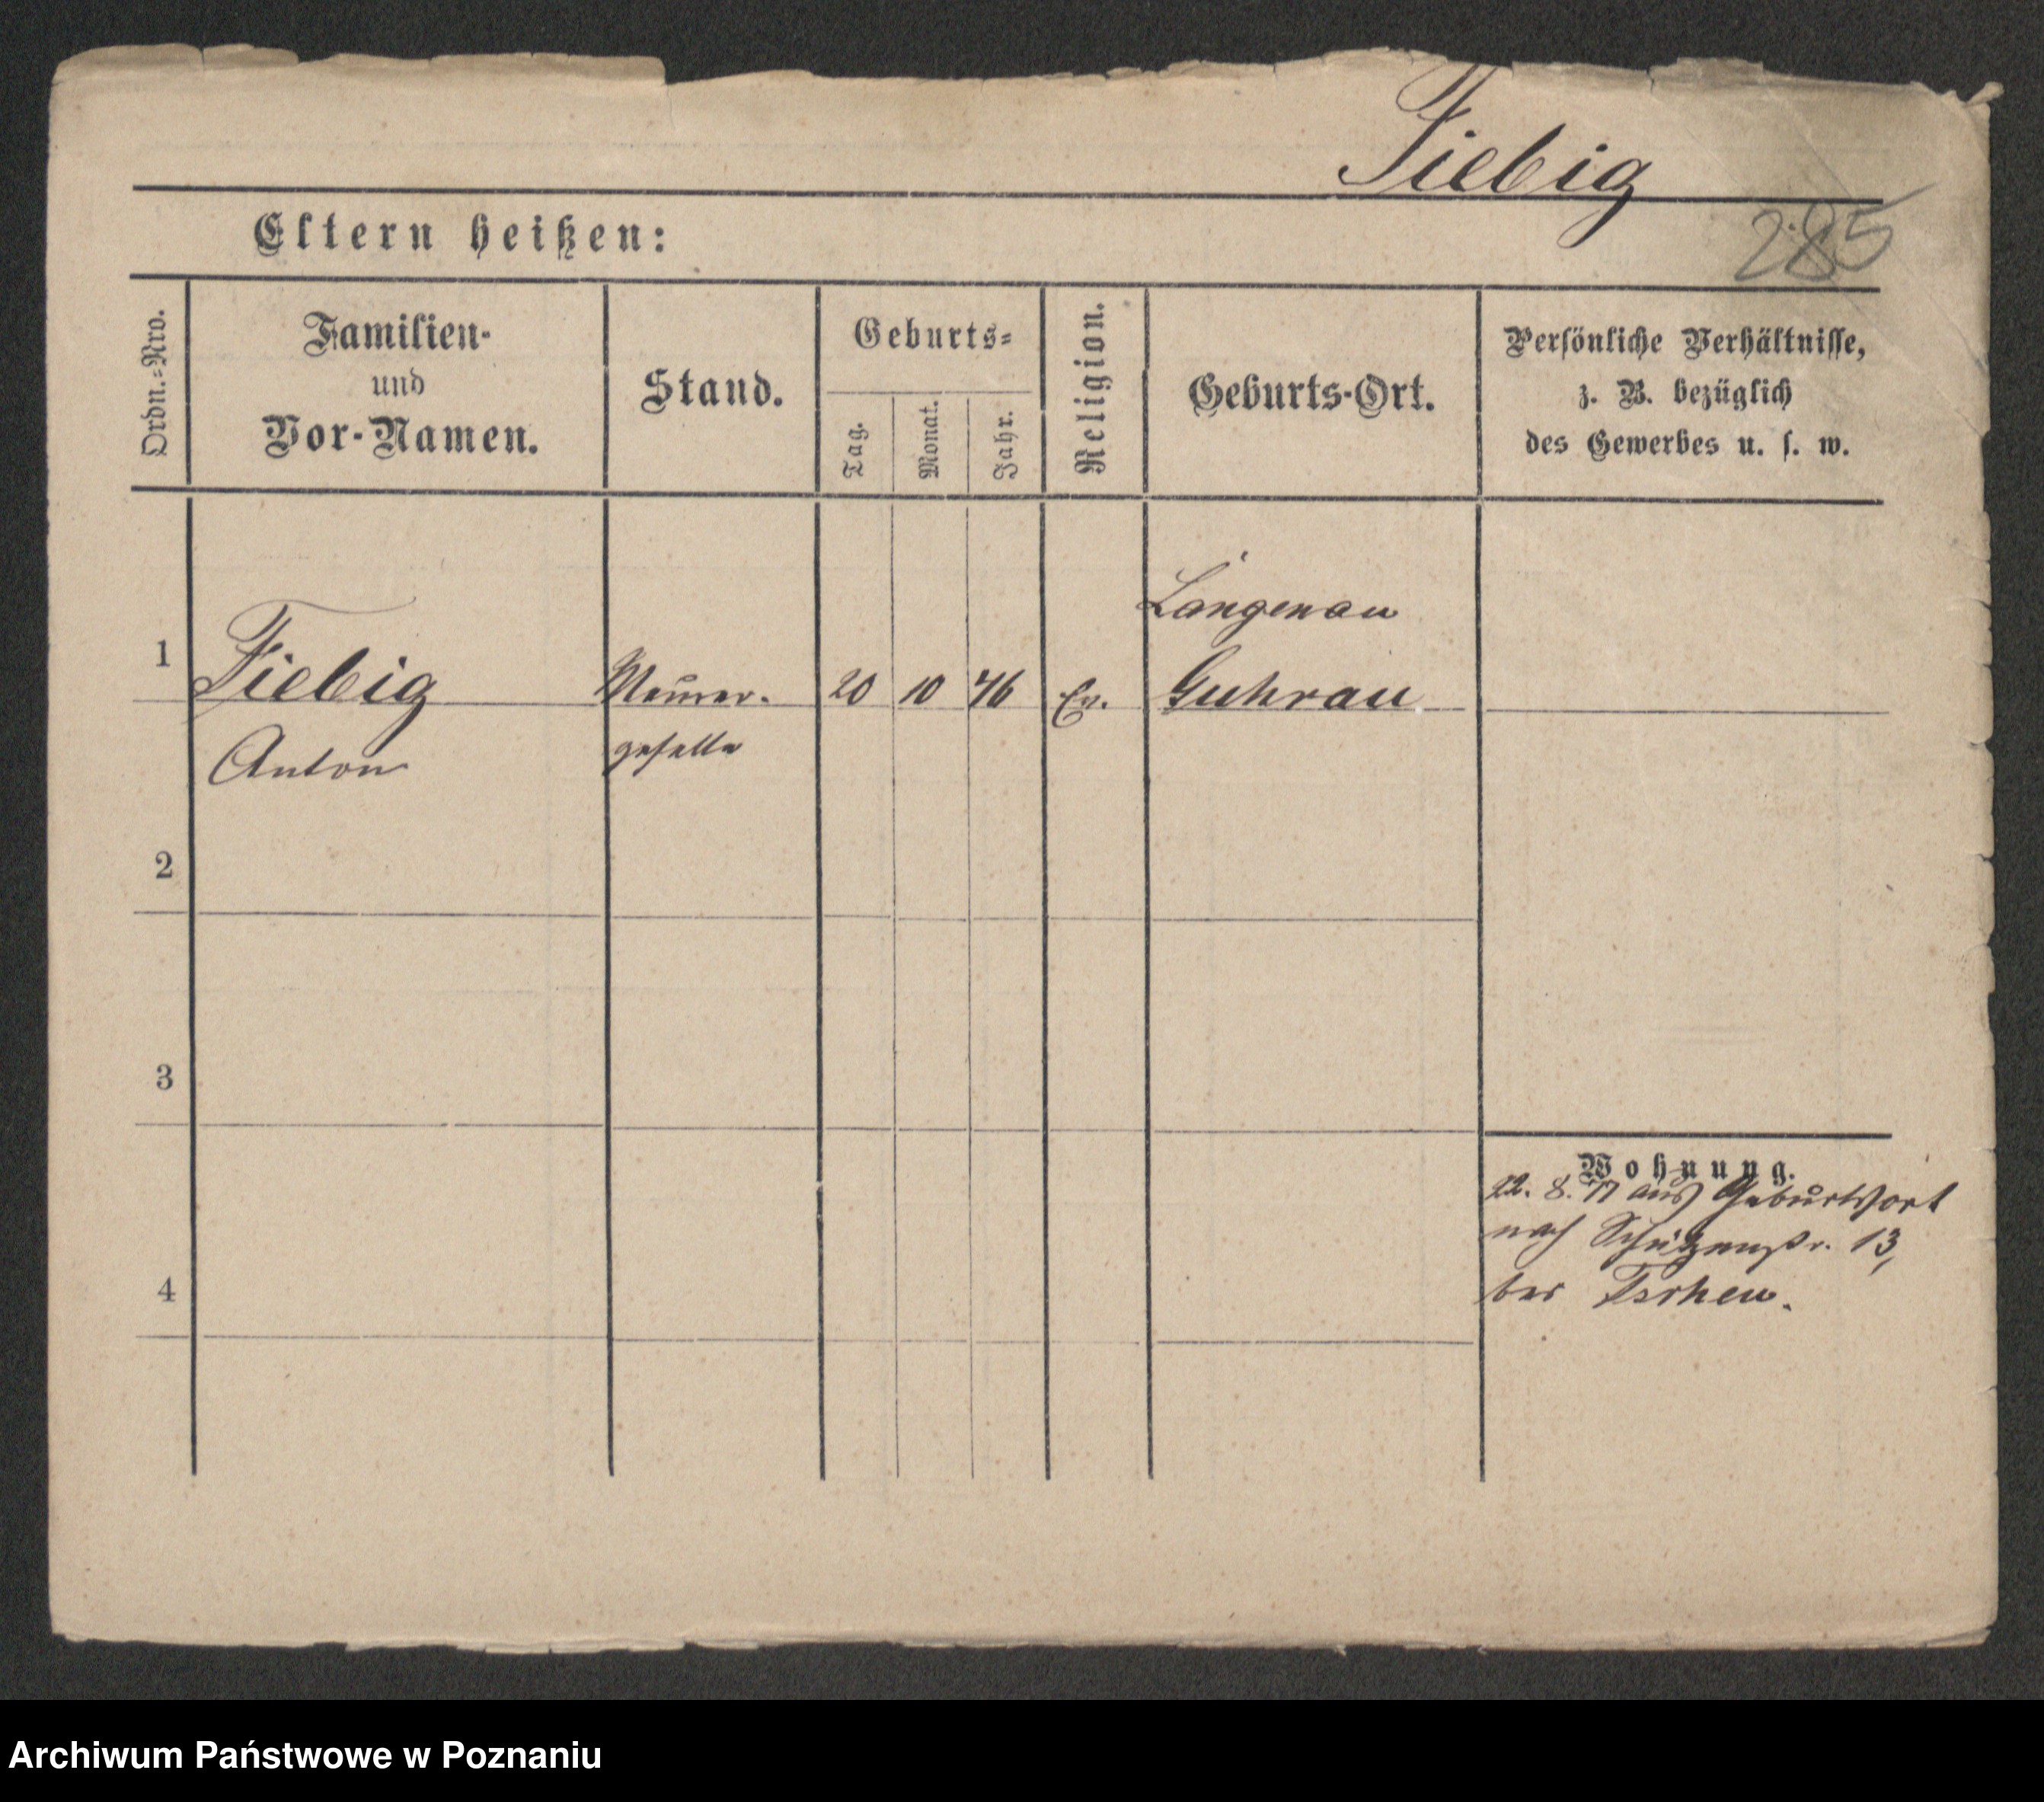 Fiebig
285
Eltern heißen:
Ordn.=Nro.
Familien-
und
Vor-Namen.
Stand.
Geburts=
Tag.
Monat.
Jahr.
Religion.
Geburts-Ort.
Persönliche Verhältnisse,
z. B. bezüglich
des Gewerbes u. s. w.
Langenau
1 Fiebig Maurer- 20 10 46 Ev. Guhrau
Anton geselle
2
3
4
Wohnung.
22. 8. 77 aus Geburtsort
nach Schützenstr. 13,
bei
Archiwum Państwowe w Poznaniu